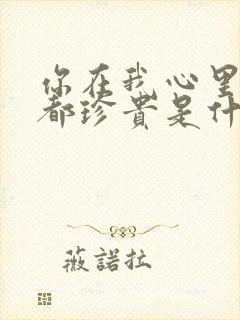 你在我心里
都珍贵是什
薇諾拉